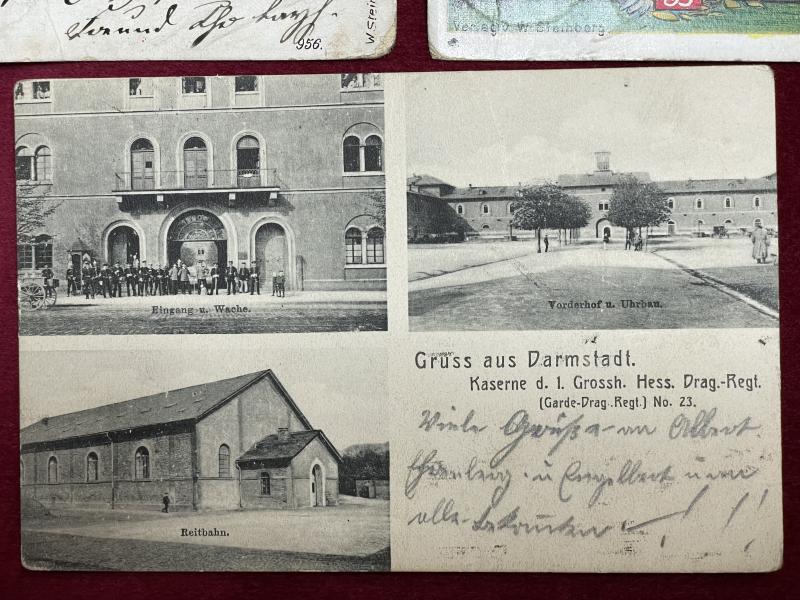 Freund
956.
Verlag v. W. Steinberg.
Eingang u. Wache.
Vorderhof u. Uhrbau.
Reitbahn.
Gruss aus Darmstadt.
Kaserne d. 1. Grossh. Hess. Drag.-Regt.
(Garde-Drag.Regt.) No. 23.
Viele Grüße an Albert
u. Engelbert u.
alle Bekannten